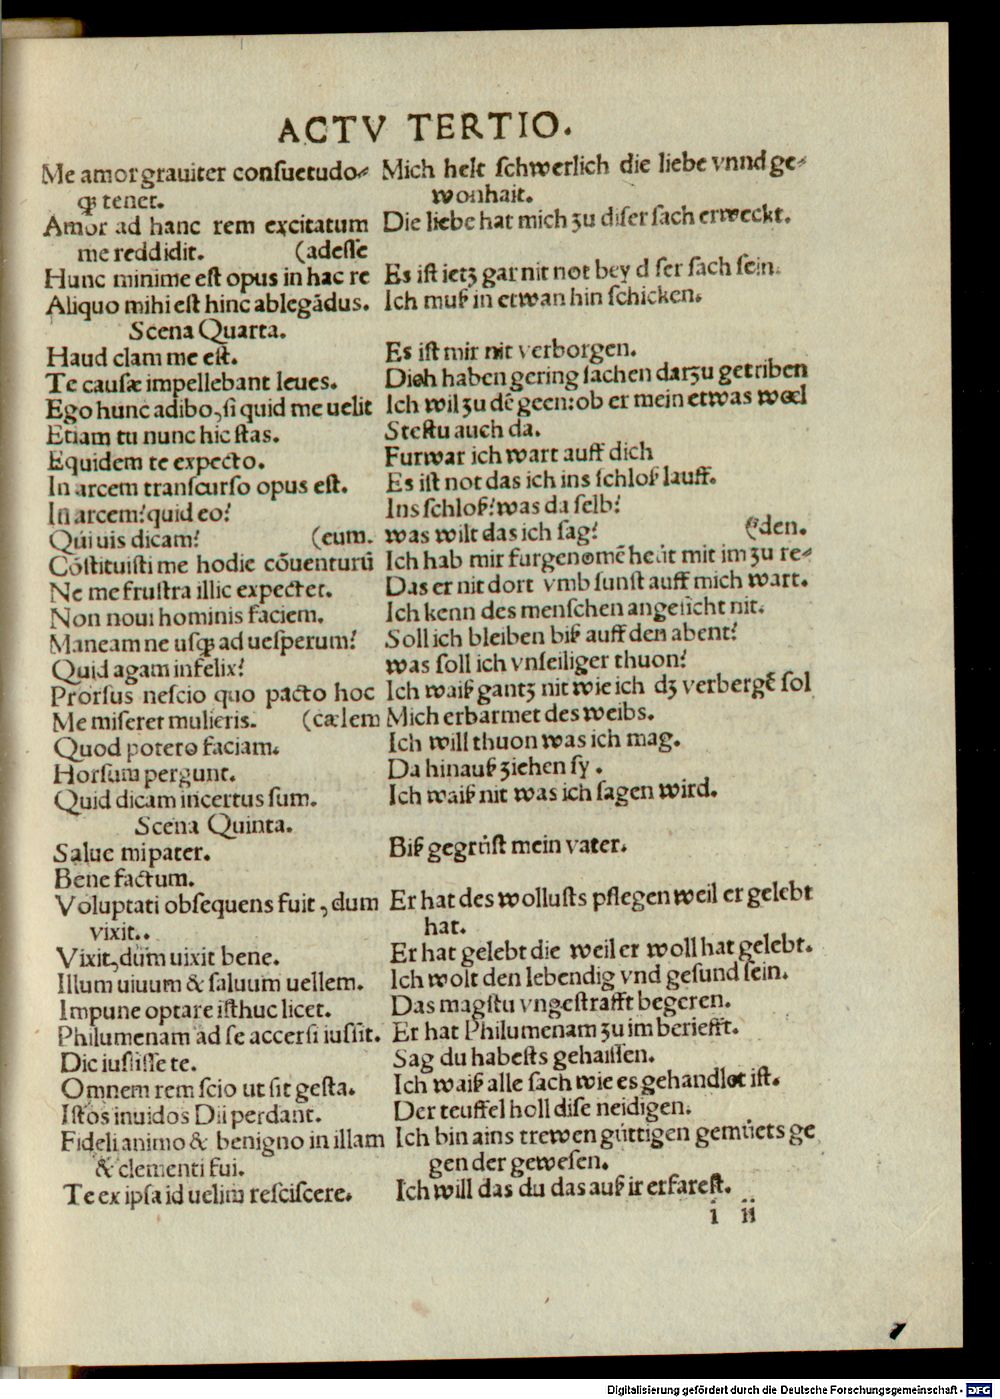 ACTV TERTIO.
Me amor grauiter consuetudo⸗ Mich helt schwerlich die liebe vnnd ge⸗
ꝙ tenet. wonhait.
Amor ad hanc rem excitatum Die liebe hat mich zu diser sach erweckt.
me reddidit. (adesse
Hunc minime est opus in hac re Es ist ietz gar nit not bey d ser sach sein.
Aliquo mihi est hinc ablegādus. Ich muß in etwan hin schicken.
Scena Quarta.
Haud clam me est. Es ist mir nit verborgen.
Te causæ impellebant leues. Dich haben gering sachen darzu getriben
Ego hunc adibo, si quid me uelit Ich wil zu dē geen: ob er mein etwas woel
Etiam tu nunc hic stas. Stestu auch da.
Equidem te expecto. Furwar ich wart auff dich
In arcem transcurso opus est. Es ist not das ich ins schloß lauff.
In arcem? quid eo? Ins schloß? was da selb?
Qui uis dicam? (eum. was wilt das ich sag? (den.
Cōstituisti me hodie cōuenturū Ich hab mir furgenomē heüt mit im zu re⸗
Ne me frustra illic expectet. Das er nit dort vmb sunst auff mich wart.
Non noui hominis faciem. Ich kenn des menschen angesicht nit.
Maneam ne usꝙ ad uesperum? Soll ich bleiben biß auff den abent?
Quid agam infelix? was soll ich vnseiliger thuon?
Prorsus nescio quo pacto hoc Ich waiß gantz nit wie ich dz verbergē sol
Me miseret mulieris. (cælem Mich erbarmet des weibs.
Quod potero faciam. Ich will thuon was ich mag.
Horsum pergunt. Da hinauß ziehen sy.
Quid dicam incertus sum. Ich waiß nit was ich sagen wird.
Scena Quinta.
Salue mi pater. Biß gegrüst mein vater.
Bene factum.
Voluptati obsequens fuit, dum Er hat des wollusts pflegen weil er gelebt
vixit.. hat.
Vixit, dum uixit bene. Er hat gelebt die weil er woll hat gelebt.
Illum uiuum & saluum uellem. Ich wolt den lebendig vnd gesund sein.
Impune optare isthuc licet. Das magstu vngestrafft begeren.
Philumenam ad se accersi iussit. Er hat Philumenam zu im beriefft.
Dic iussisse te. Sag du habests gehaissen.
Omnem rem scio ut sit gesta. Ich waiß alle sach wie es gehandlet ist.
Istos inuidos Dii perdant. Der teuffel holl dise neidigen.
Fideli animo & benigno in illam Ich bin ains trewen güttigen gemüets ge
& clementi fui. gen der gewesen.
Te ex ipsa id uelim resciscere. Ich will das du das auß ir erfarest.
i ii
Digitalisierung gefördert durch die Deutsche Forschungsgemeinschaft - DFG